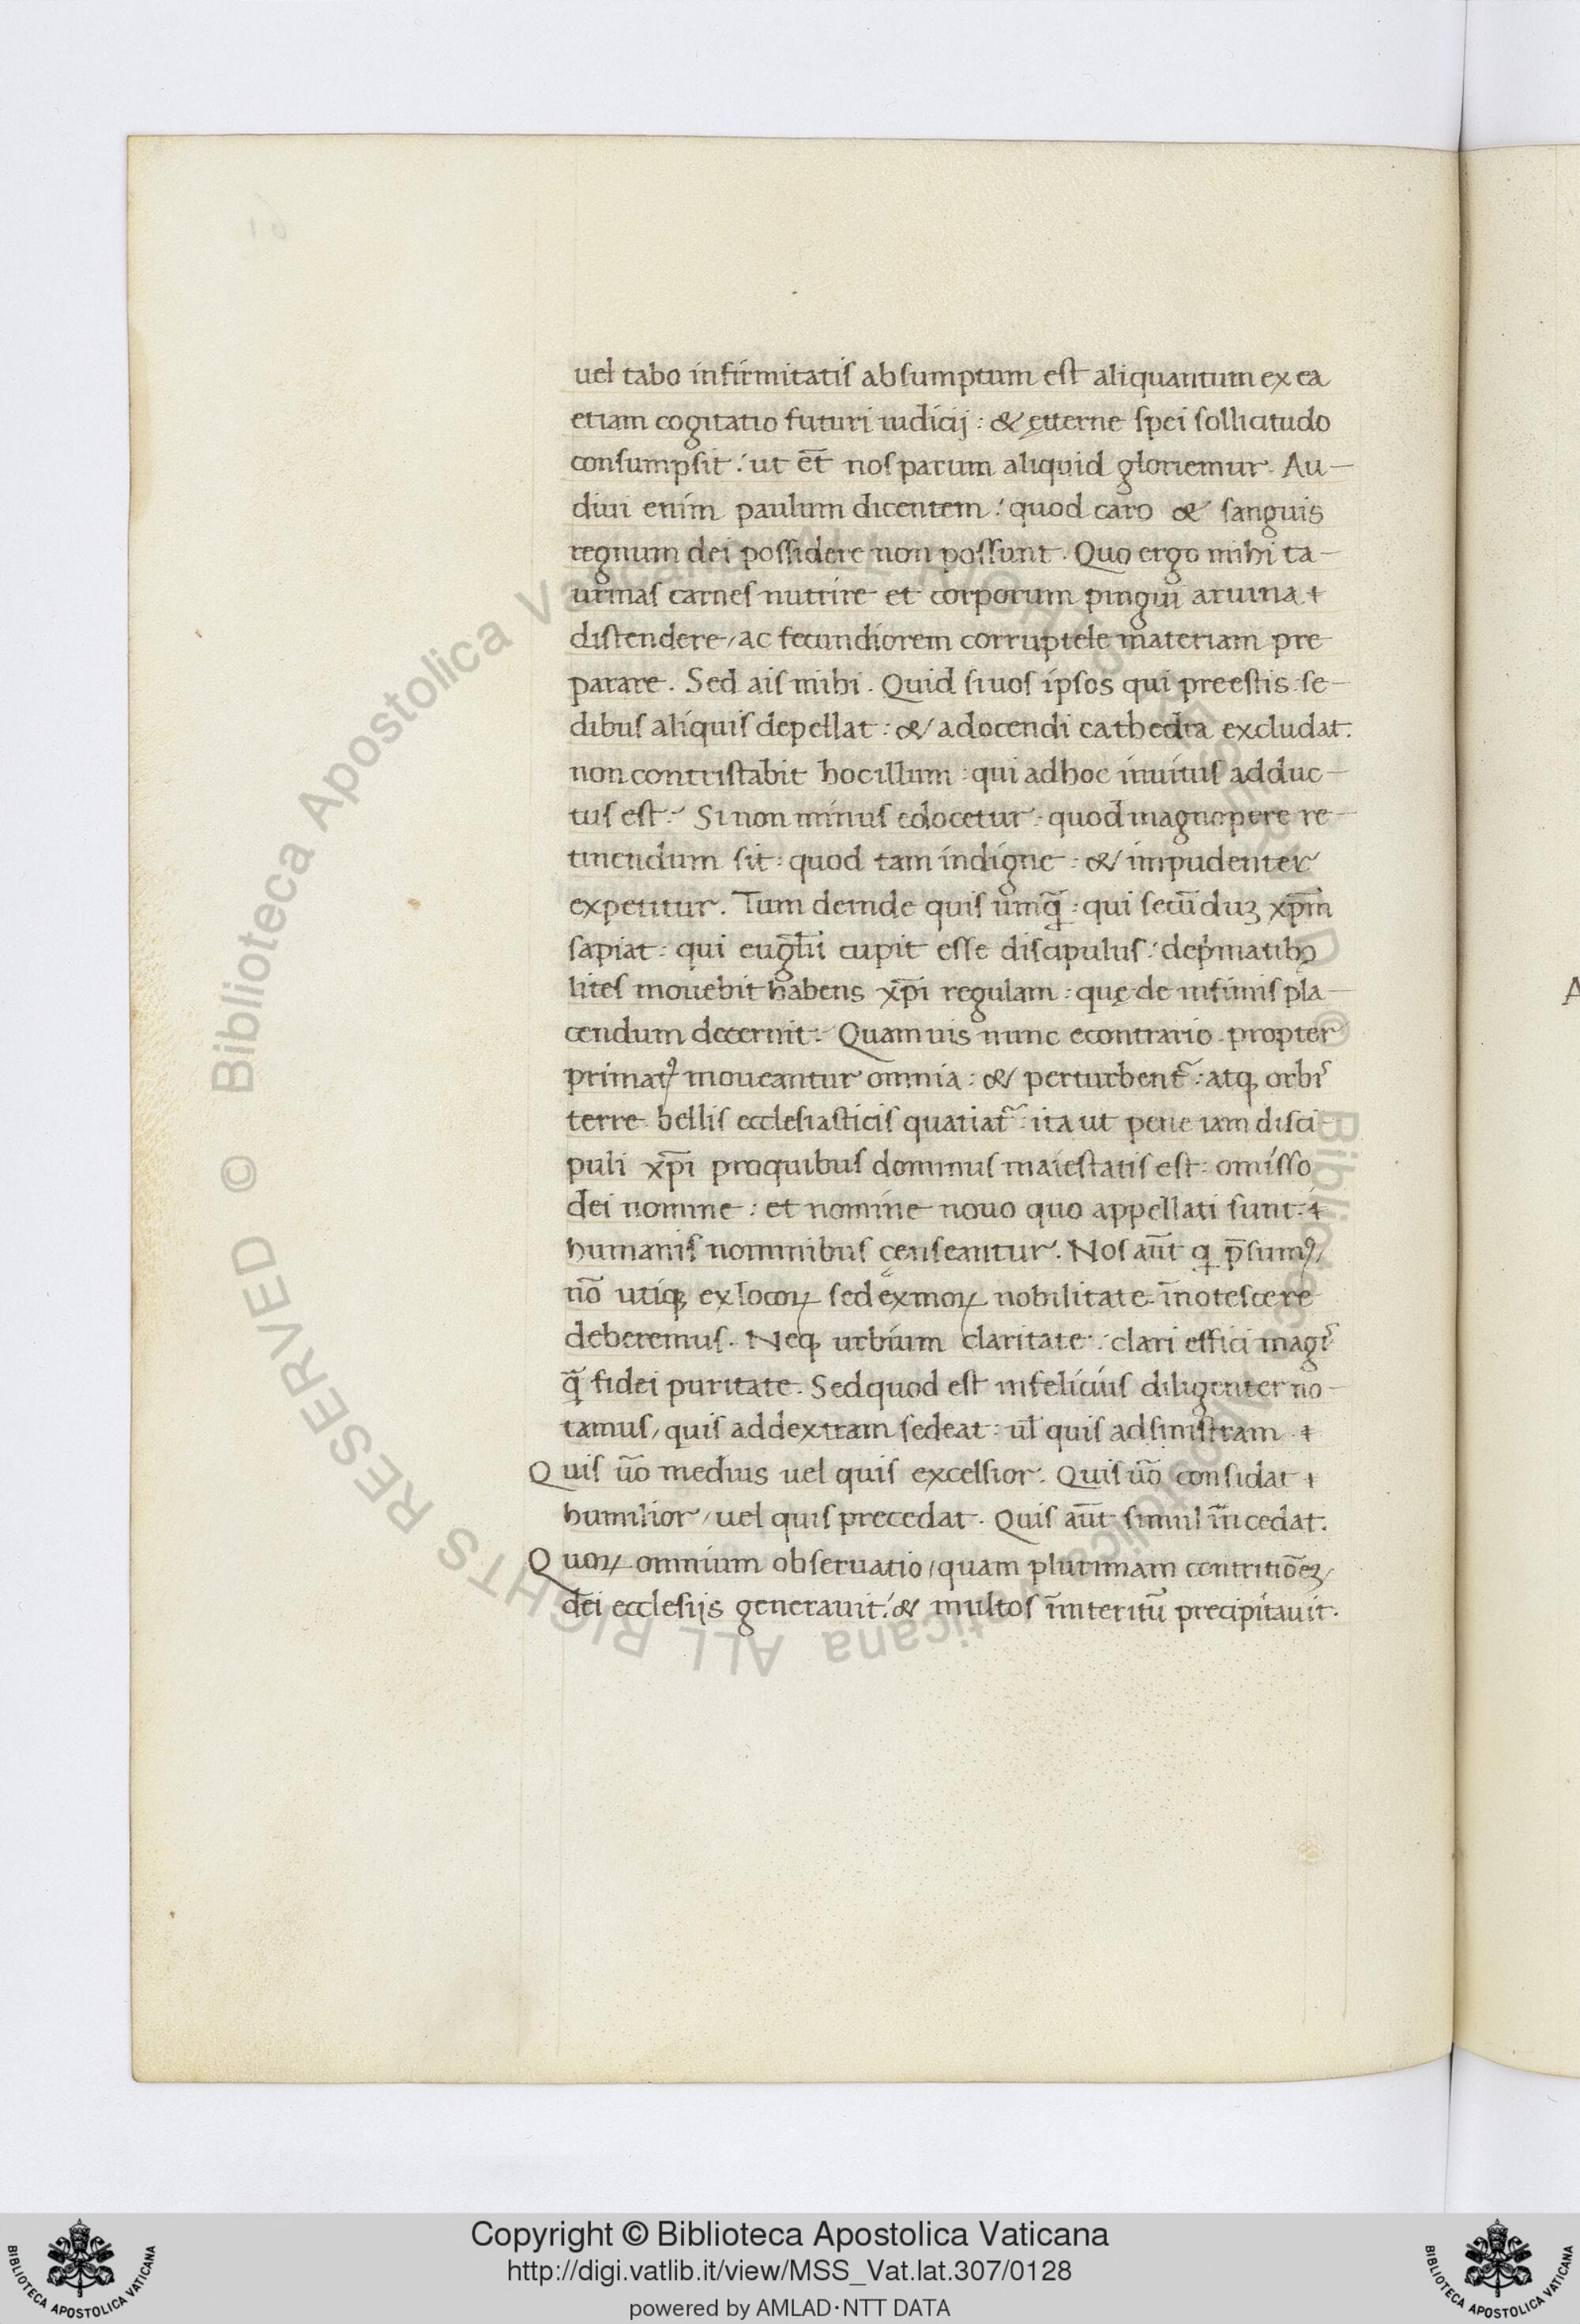 uel tabo infirmitatis absumptum est aliquantum ex ea
etiam cogitatio futuri iudicij : & ętterne spei sollicitudo
consumpsit : ut et̄ nos parum aliquid gloriemur. Au-
diui enim paulum dicentem : quod caro & sanguis
regnum dei possidere non possunt. Quo ergo mihi ta-
urinas carnes nutrire et corporum pingui aruina +
distendere, ac fecundiorem corruptele materiam pre
parare. Sed ais mihi. Quid si uos ipsos qui preestis se-
dibus aliquis depellat : & a docendi cathedra excludat.
non contristabit hoc illum : qui ad hoc inuitus adduc-
tus est. Si non minus edocetur quod magnopere re-
tinendum sit : quod tam indigne : & impudenter
expetitur. Tum deinde quis umq̄ : qui secūduʒ xp̄m
sapiat : qui eugl̄ii cupit esse discipulus
lites mouebit habens xp̄i regulam : quę de infimis pla-
cendum decernit. Quamuis nunc econtrario propter
primatꝰ moueantur omnia : & perturbent᷑ : atqꝫ orbi᷒
terre bellis ecclesiasticis quatiat᷑ : ita ut pene iam disci
puli xp̄i pro quibus dominus maiestatis est : omisso
dei nomine : et nomine nouo quo appellati sunt : +
humanis nominibus censeantur. Nos aūt q p̄sumꝰ,
nō utiqꝫ ex locoꝝ sed ex moꝝ nobilitate īnotescere
deberemus. Neqꝫ urbium claritate : clari effici magi᷒
q̄ fidei puritate. Sed quod est infelicius diligenter no-
tamus, quis ad dextram sedeat : ul̄ quis ad sinistram +
Quis ūo medius uel quis excelsior. Quis ūo considat +
humilior, uel quis precedat. Quis aūt simul īncedat.
Quoꝝ omnium obseruatio, quam plurimam contritiōeʒ,
dei ecclesijs generauit : & multos īnteritū precipitauit.
Copyright © Biblioteca Apostolica Vaticana
http://digi.vatlib.it/view/MSS_Vat.lat.307/0128
powered by AMLAD·NTT DATA